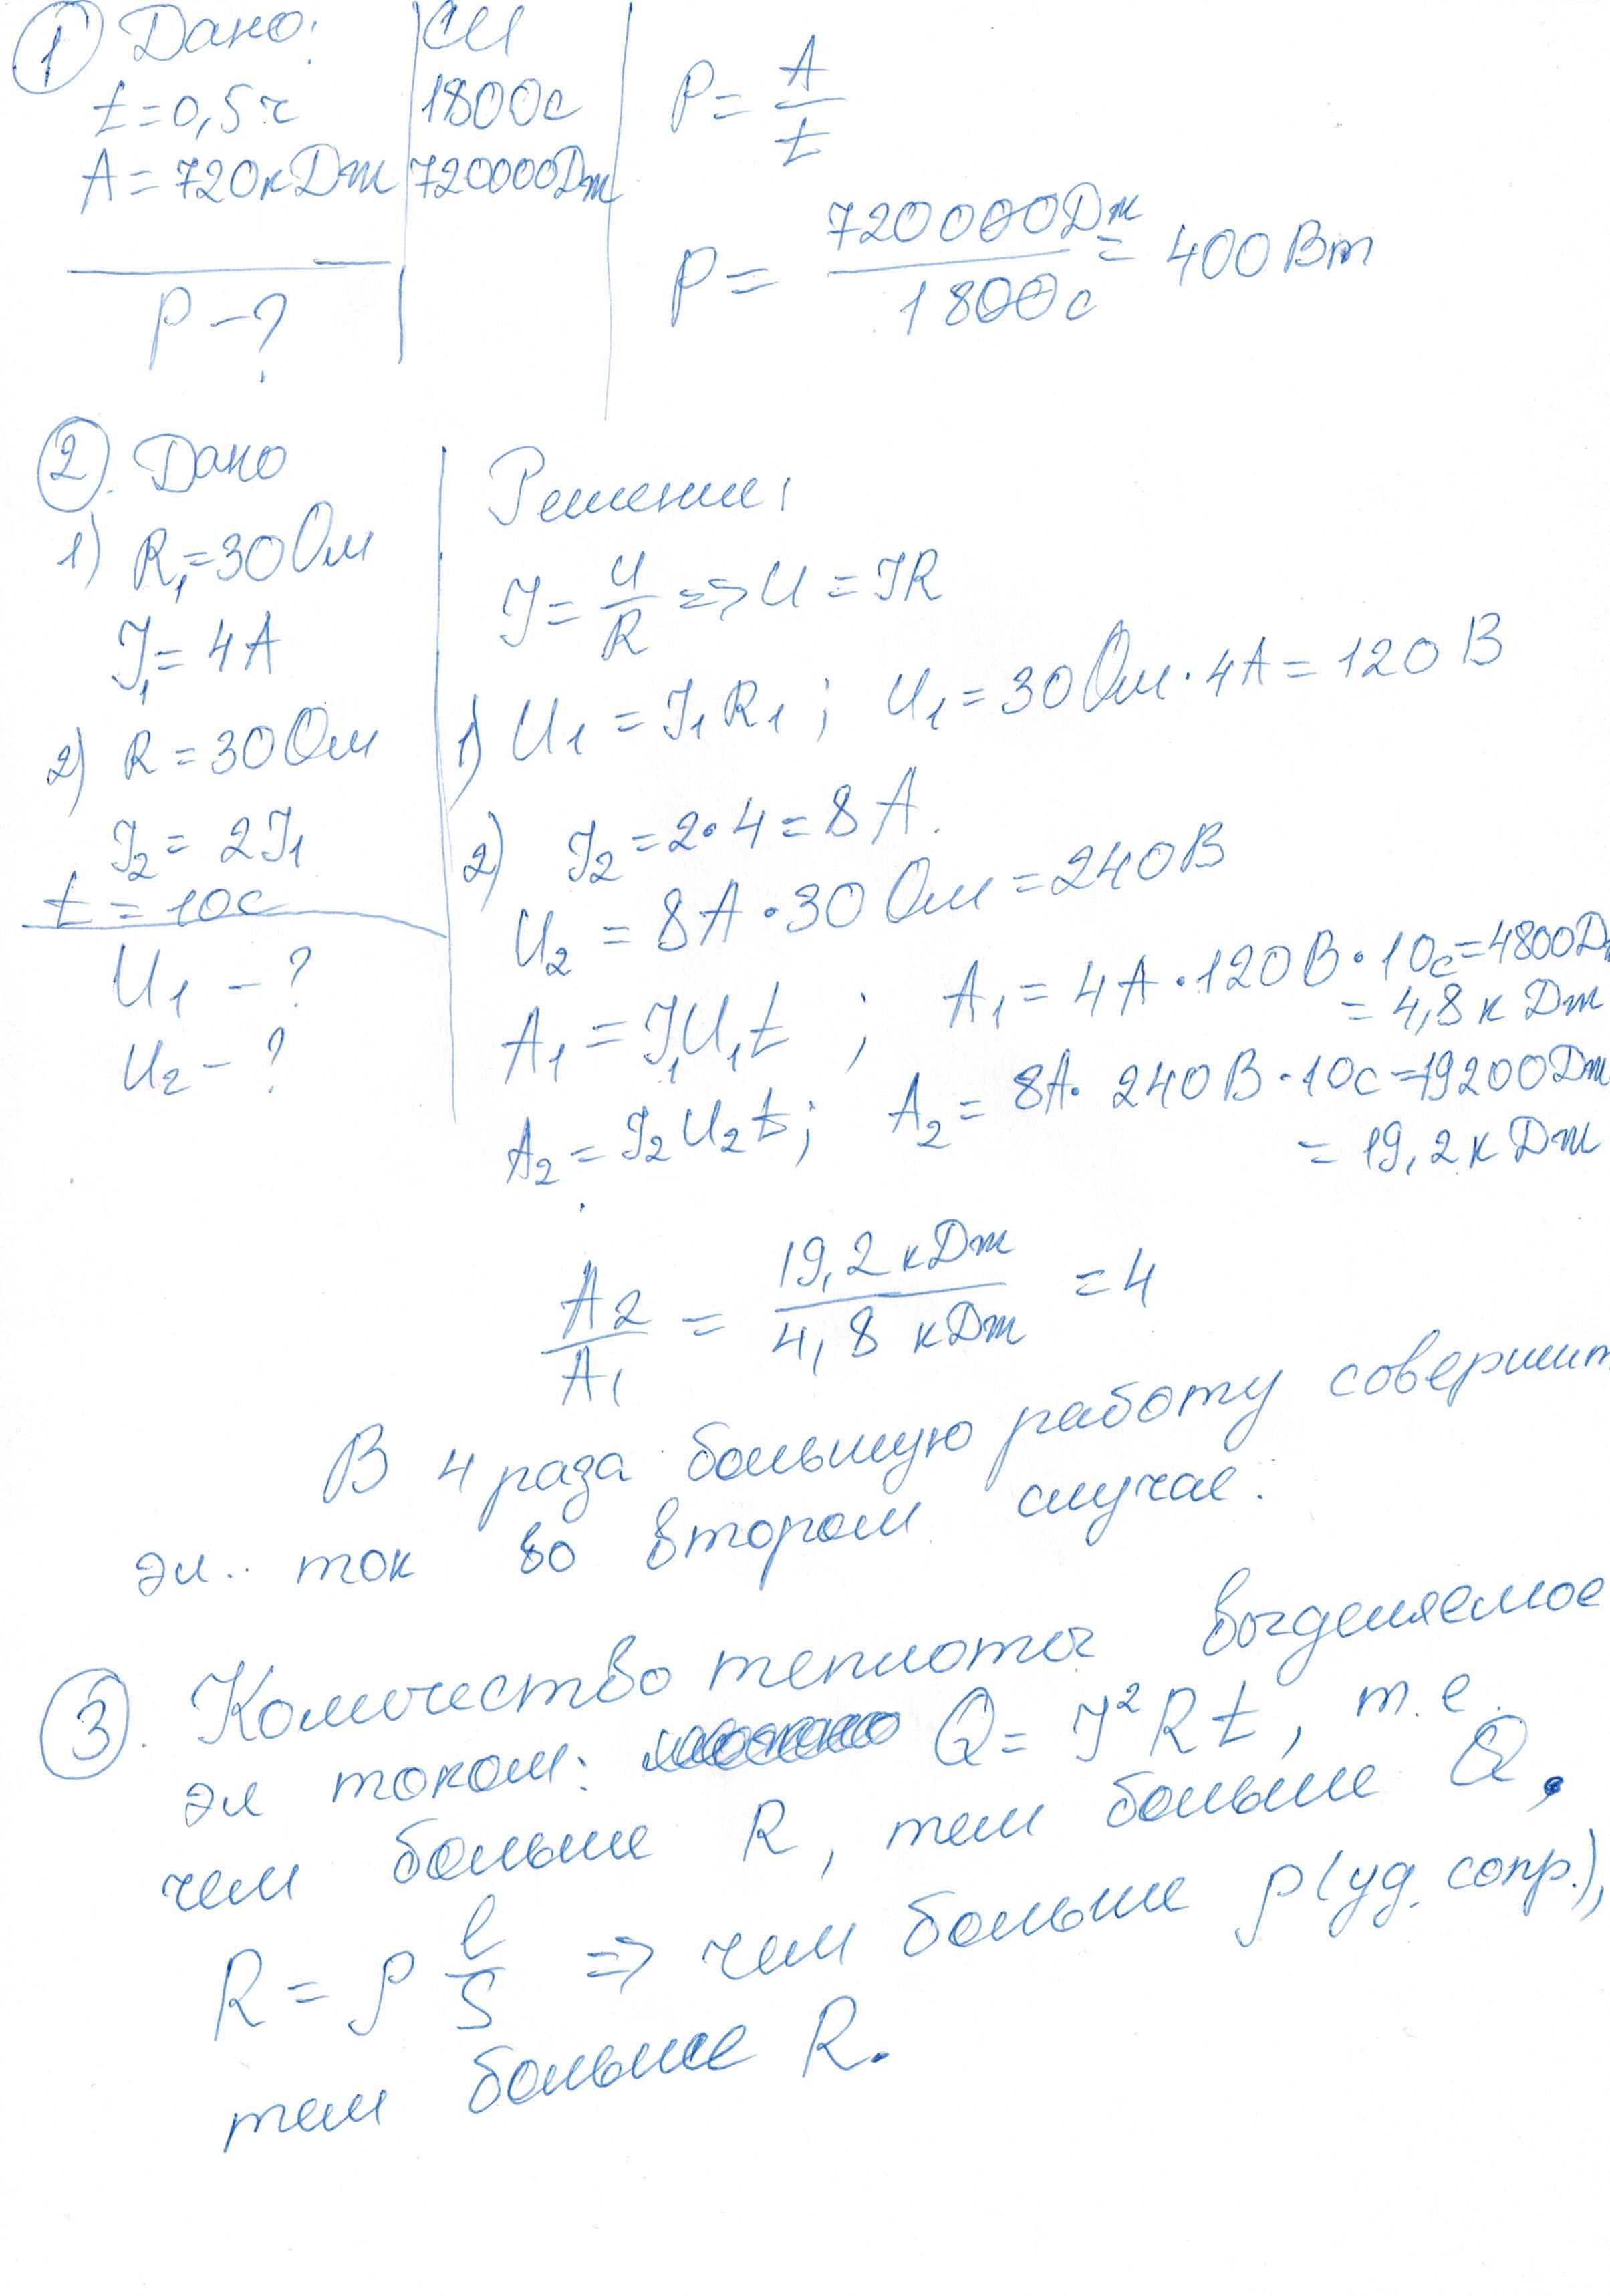 1 Дано: СИ
t = 0,5 ч 1800с
A = 720кДж 720000Дж
P - ?
P = A/t
P = 720000Дж/1800с = 400 Вт
2. Дано
1) R₁ = 30 Ом
J₁ = 4A
2) R = 30 Ом
J₂ = 2J₁
t = 10с
U₁ - ?
U₂ - ?
Решение:
J = U/R => U = JR
1) U₁ = J₁R₁; U₁ = 30 Ом · 4A = 120 В
2) J₂ = 2·4 = 8 A.
U₂ = 8A · 30 Ом = 240 В
A₁ = J₁U₁t; A₁ = 4A · 120 В · 10с = 4800Дж
= 4,8 кДж
A₂ = J₂U₂t; A₂ = 8A · 240 В · 10с = 19200Дж
= 19,2 кДж
A₂/A₁ = 19,2 кДж/4,8 кДж = 4
В 4 раза большую работу совершит
эл.. ток во втором случае.
3. Количество теплоты выделяемое
эл током: Q = J²Rt, т.е.
чем больше R, тем больше Q.
R = ρ l/S => чем больше ρ (уд. сопр.),
тем больше R.